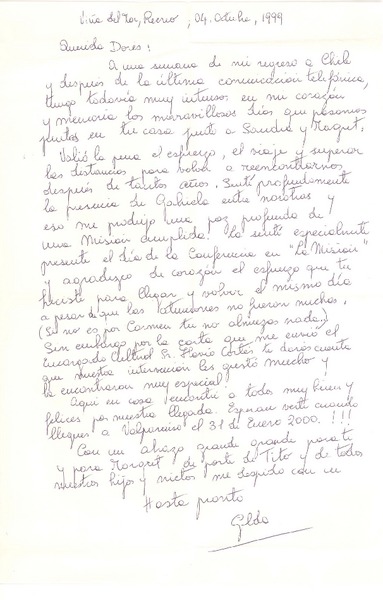 Viña del Mar, Recreo, 04. Octubre, 1999
Querida Doris:
A una semana de mi regreso a Chile
y después de la última comunicación telefónica,
tengo todavía muy intensos en mi corazón
y memoria los maravillosos días que pasamos
juntas en tu casa junto a Sandra y Margret.
Valió la pena el esfuerzo, el viaje y superar
las distancias para volver a reencontrarnos
después de tantos años. Sentí profundamente
la presencia de Gabriela entre nosotras y
eso me produjo una paz profunda de
una Misión cumplida. La sentí especialmente
presente el día de la Conferencia en "La Misión"
y agradezco de corazón el esfuerzo que tú
hiciste para llegar y volver el mismo día
a pesar de que las no fueron muchas.
(Si no es por Carmen tú no almuerzas nada.)
Sin embargo por la carta que me envió el
Encargado Cultural Sr. Flavio Cortés te darás cuenta
que nuestra intervención les gustó mucho y
la encontraron muy especial.
Aquí en casa encontré a todos muy bien y
felices por nuestra llegada. Esperan verte cuando
llegues a Valparaíso el 31 de Enero 2000. !!!
Con un abrazo grande grande para ti
y para Margret de parte de Tito y de todos
nuestros hijos y nietos me despido con un
Hasta pronto
Gilda